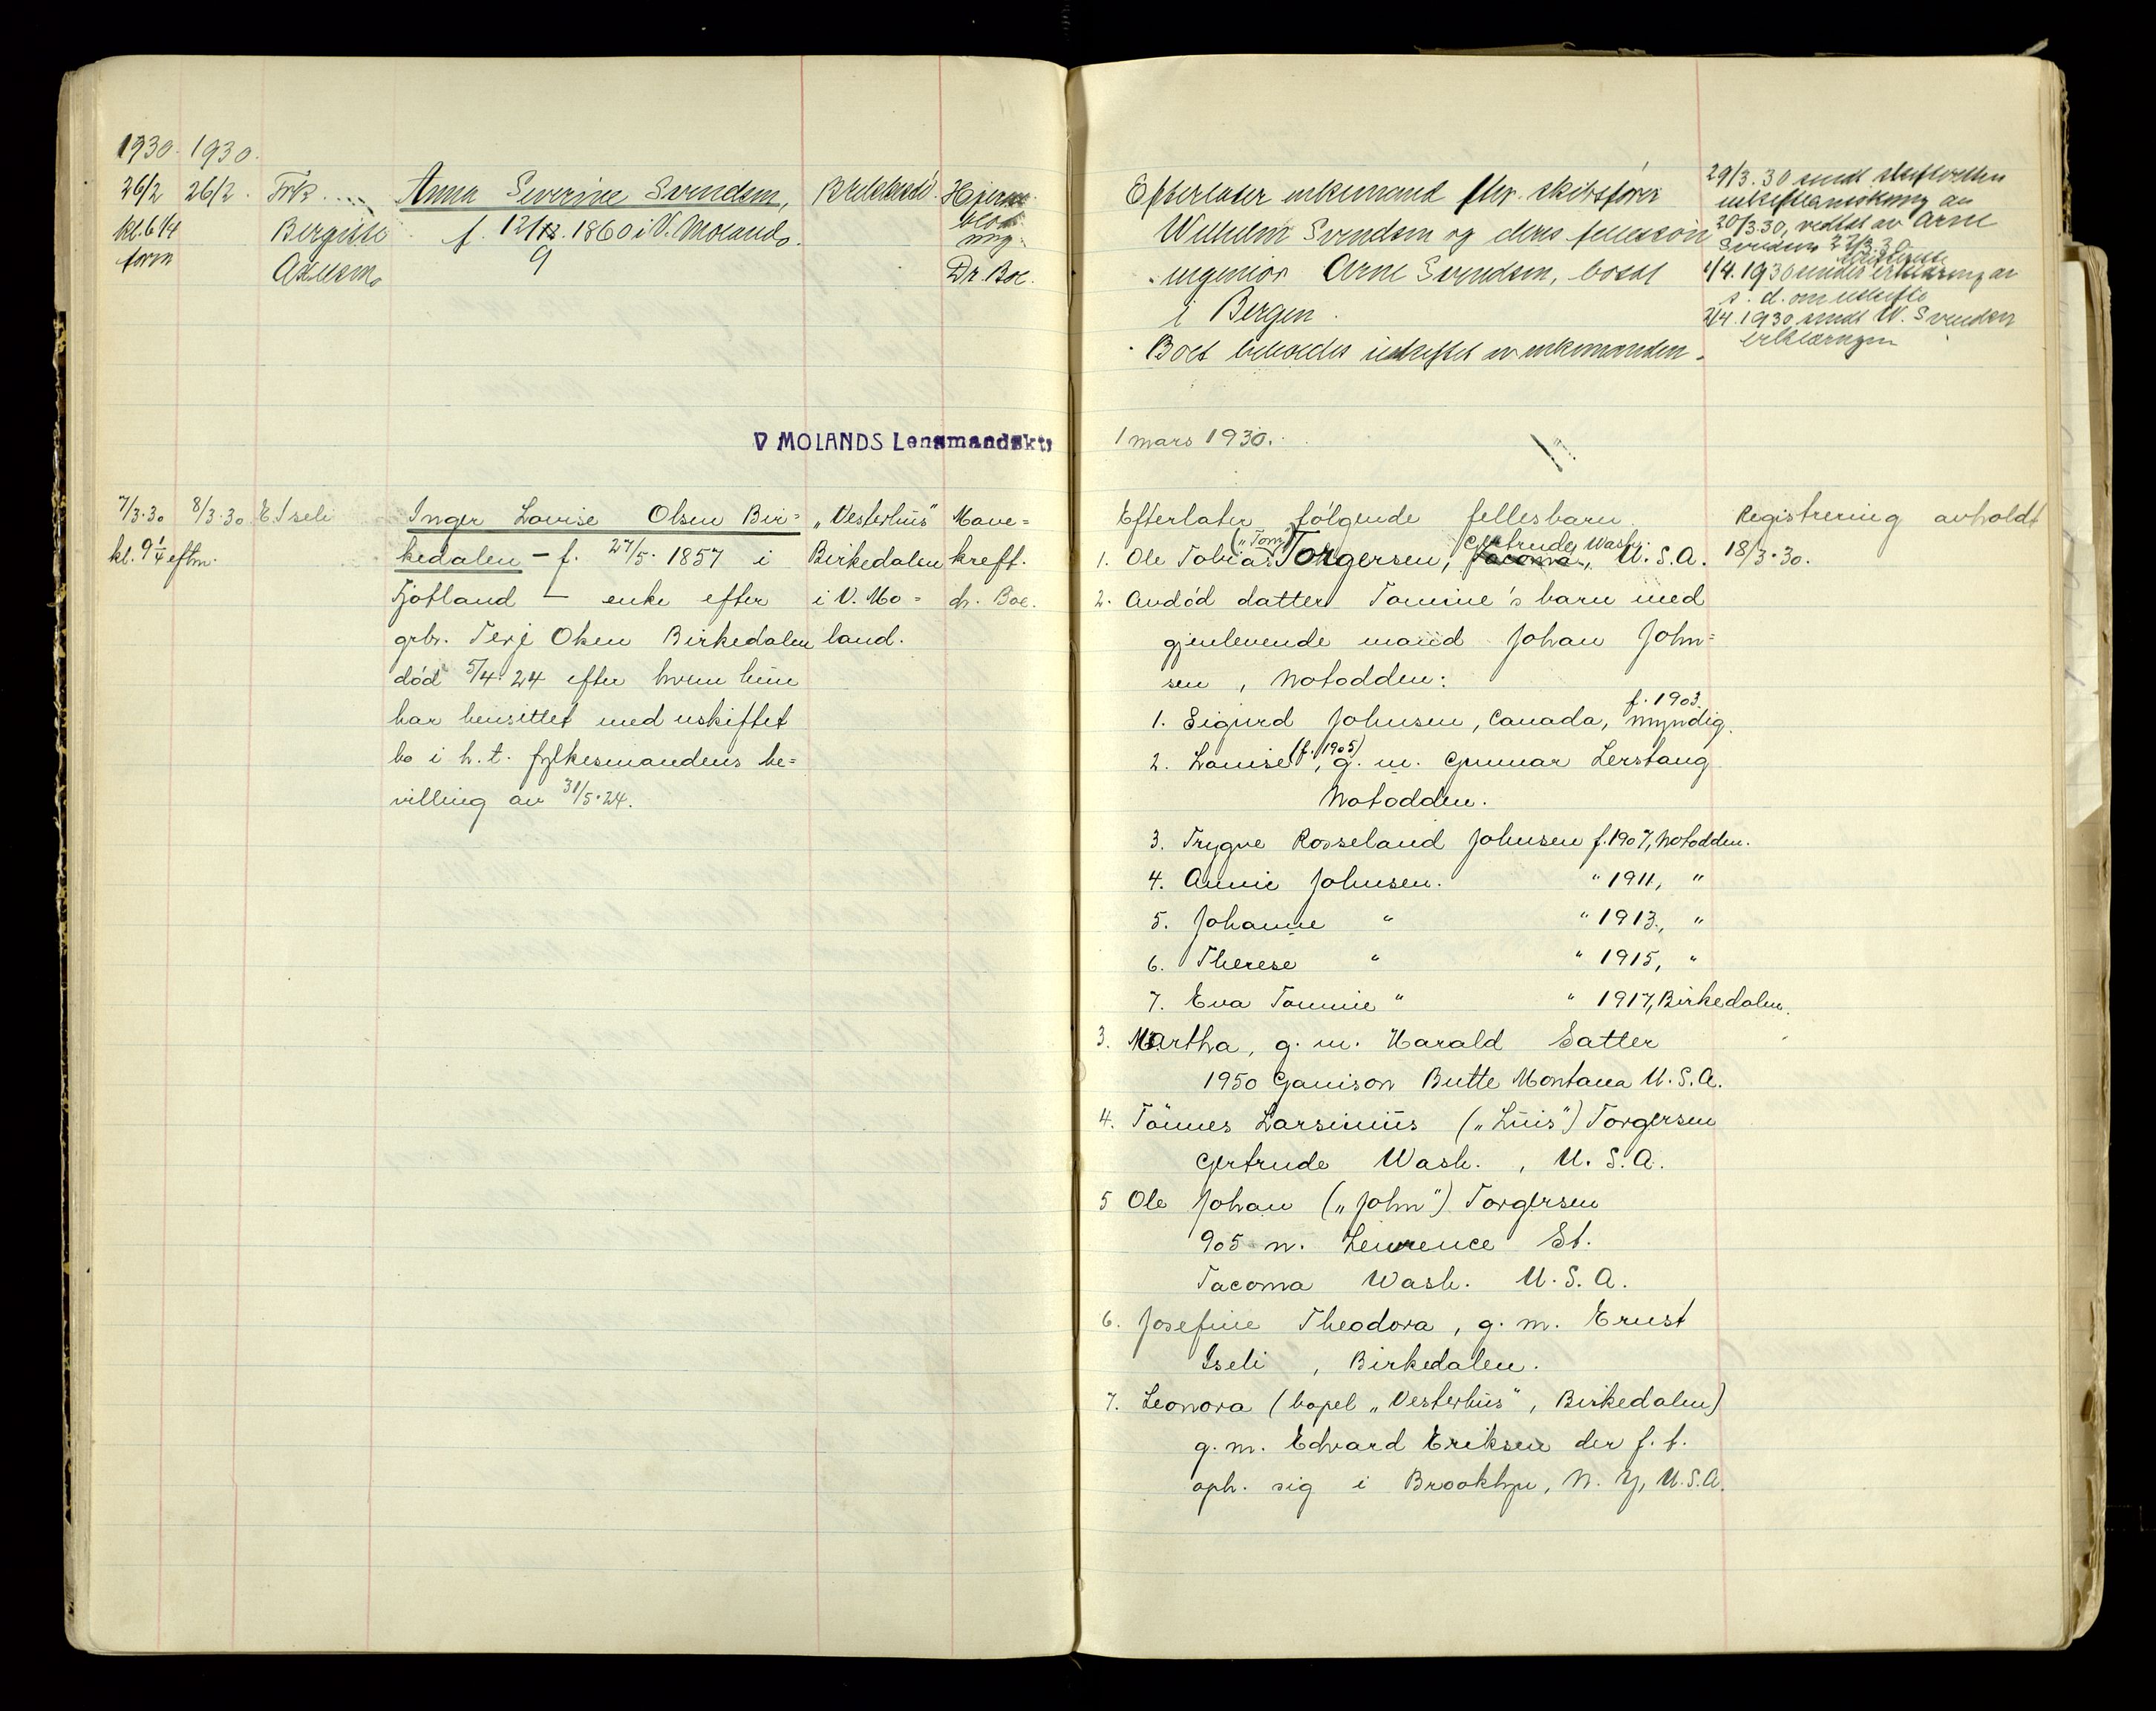 1930. 1930.
26/2 26/2. Frk. Anna Severine Svendsen, Brekkestø. Hjerne
kl. 6 1/4 Bergitte f. 12/9. 1860 i V. Moland. blød
form Axelsen ning.
Dr. Boe.
V MOLANDS Lensmandskt
7/3.30 8/3.30 E Iseli Inger Lovise Olsen Bir= „Vesterhus" Mave=
kl. 9 1/4 eftm. kedalen – f. 27/5. 1857 i Birkedalen kreft.
Fjotland – enke efter i V. Mo= dr. Boe.
grbr. Terje Olsen Birkedalen land.
død 5/4. 24 efter hvem hun
har hensittet med uskiftet
bo i h. t. fylkesmandens be=
villing av 31/5.24.
Efterlater enkemand fhv. skibsfører
Wilhelm Svendsen og deres fellessøn
ingeniør Arne Svendsen, bosat
i Bergen.
Boet beholdes uskiftet av enkemanden.
29/3. 30 sendt skifteretten
uskifteansøkning av
20/3.30, vedtat av Arne
Svendsen 27/3.30
1/4. 1930 erklæring av
s. d. om uskifte
2/4. 1930 sendt W. Svendsen
erklæringen
1 mars 1930.
Efterlater følgende fellesbarn
Registrering avholdt
18/3.30.
1. Ole Tobias („Tom") Torgersen, Tacoma, Gertrude, Wash. U.S.A.
2. Avdød datter Tomine's barn med
gjenlevende mand Johan John=
sen, Notodden:
1. Sigurd Johnsen, Canada, f. 1903. myndig.
2. Louise (f. 1905), g. m. Gunnar Lerstang
Notodden.
3. Trygve Rosseland Johnsen f. 1907, Notodden.
4. Annie Johnsen. " 1911, "
5. Johanne " " 1913, "
6. Therese " " 1915, "
7. Eva Tomine " " 1917, Birkedalen.
3. Martha, g. m. Harald Satter
1950 Ganison Butte Montana U.S.A.
4. Tönnes Larsinius („Luis") Torgersen
Gertrude Wash., U.S.A.
5 Ole Johan („John") Torgersen
905 n. Lewrence St.
Tacoma Wash. U.S.A.
6. Josefine Theodora, g. m. Ernst
Iseli, Birkedalen.
7. Leonora (bopel „Vesterhus", Birkedalen)
g. m. Edvard Eriksen der f. t.
oph. sig i Brooklyn, N. Y, U.S.A.